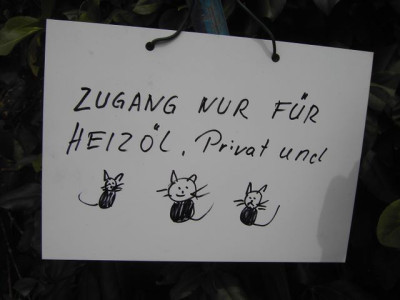 ZUGANG NUR FÜR
HEIZÖL, Privat und